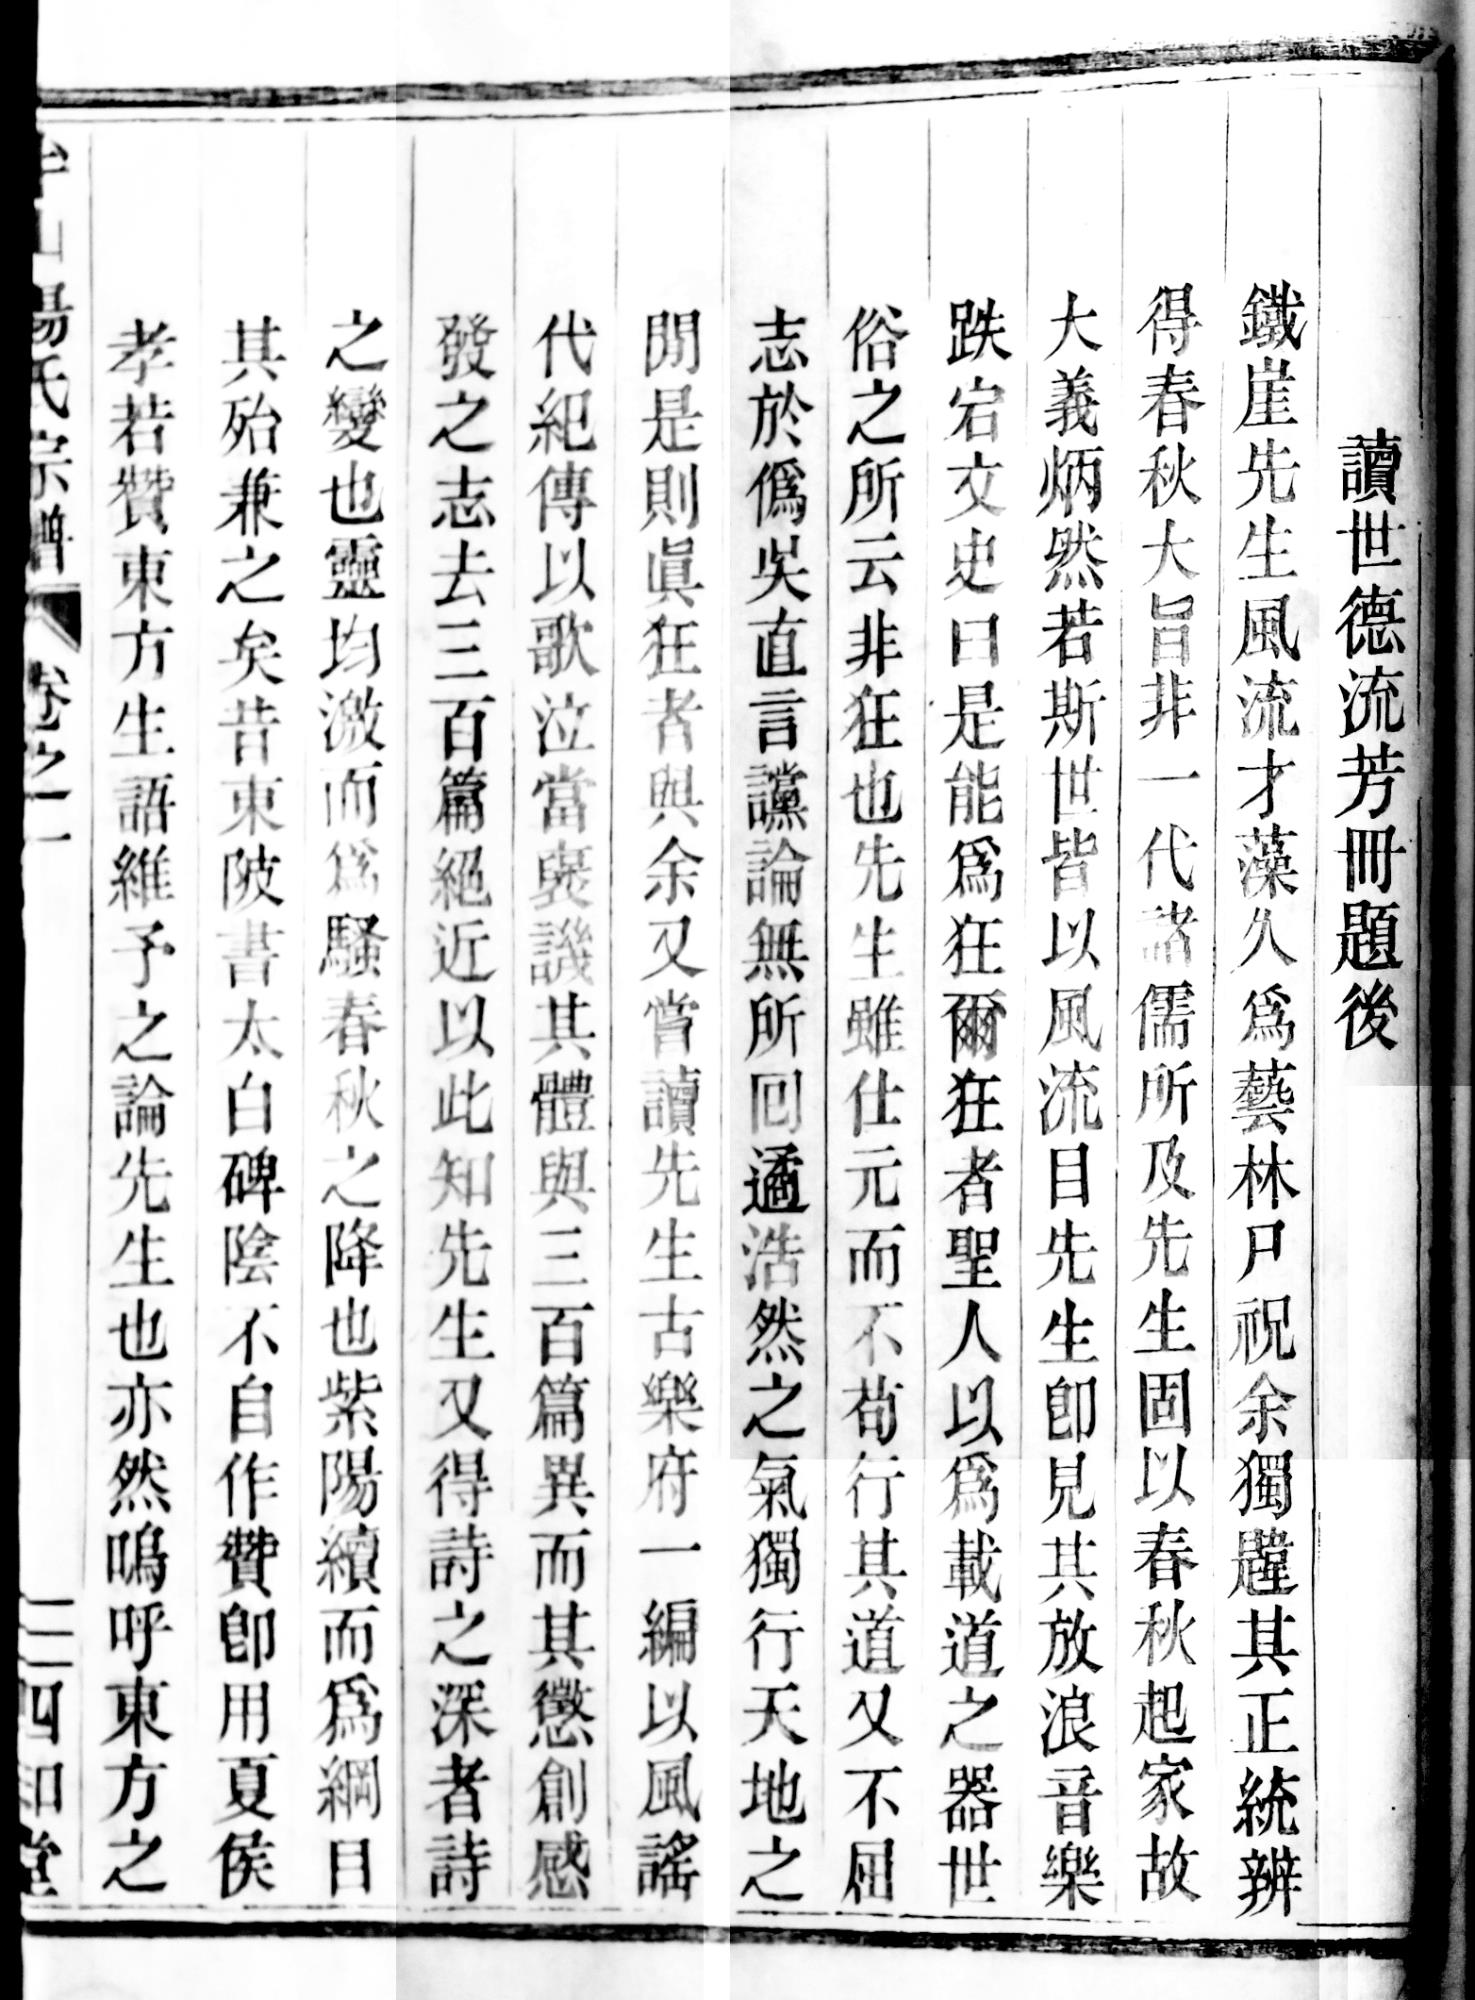 讀世德流芳冊題後
鐵崖先生風流才藻久爲藝林尸祝余獨韙其正統辨
得春秋大旨非一代諸儒所及先生固以春秋起家故
大義炳然若斯世皆以風流目先生卽見其放浪音樂
跌宕文史曰是能爲狂爾狂者聖人以爲載道之器世
俗之所云非狂也先生雖仕元而不苟行其道又不屈
志於僞吳直言讜論無所回遹浩然之氣獨行天地之
閒是則眞狂者與余又嘗讀先生古樂府一編以風謠
代紀傳以歌泣當褒譏其體與三百篇異而其懲創感
發之志去三百篇絕近以此知先生又得詩之深者詩
之變也靈均激而爲騷春秋之降也紫陽續而爲綱目
其殆兼之矣昔東陂書太白碑陰不自作贊卽用夏侯
孝若贊東方生語維予之論先生也亦然嗚呼東方之
山楊氏宗譜 卷之一 四知堂